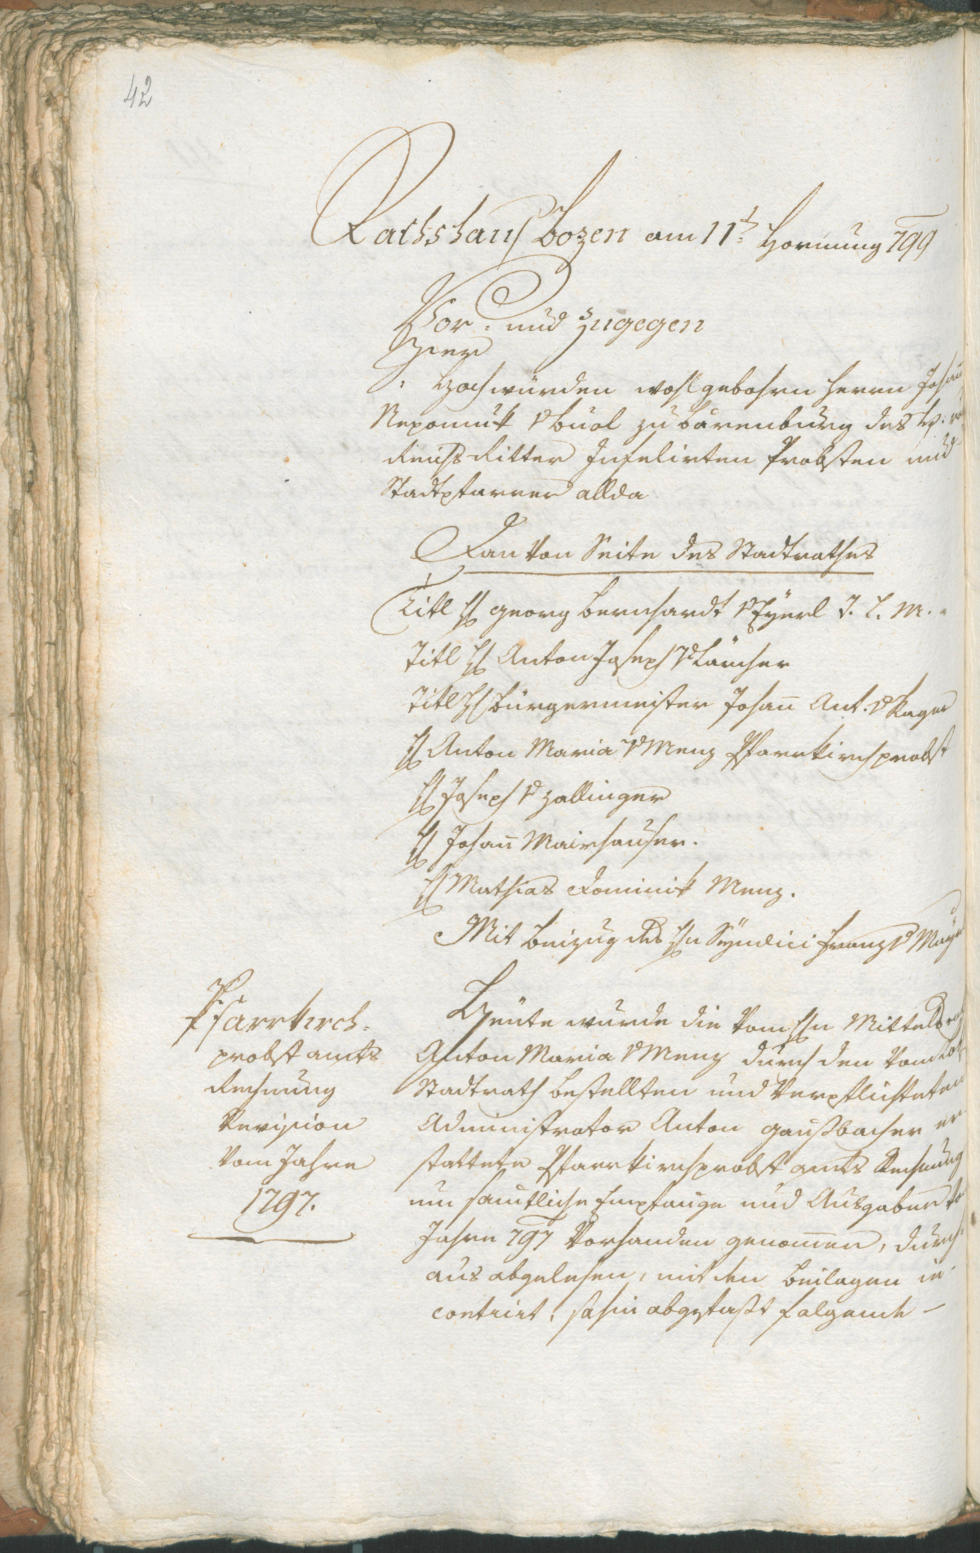 42
Rathshauß Bozen am 11t. Hornung 799
Vor- und Zugegen
Hochwürden wohlgebohrn Herrn Johan
Nepomuk v Buol zu Bärenburg des H.
Reichs Ritter Infulirten Probsten und
Stadtpfarrer allda
Dan von Seite des Stadtrathes
Titl H Georg Bernhardt v Eÿerl
Titl H Anton Joseph v Larcher
Titl H Bürgermeister Johann Ant. v Kager
H Anton Maria v Menz Pfarrkirchprobst
H Joseph v Zallinger
H Johann Mairhauser.
H Mathias Dominik Menz.
Mit Beizug des Hn Syndici Franz v
Pfarrkirch-
probst amts
Rechnung
Revision
vom Jahre
1797.
Heute wurde die vom Hn Mittels
Anton Maria v Menz durch den vom
Stadtrath bestellten und verpflichteten
Administrator Anton Gaußbacher er
stattete Pfarrkirchprobst amts Rechnung
um samtliche Empfänge und Ausgaben
Jahrs 797 vorhanden genommen, durch
aus abgelesen, mit den Beilagen in
contrirt, sohin abgefaßt folgende –